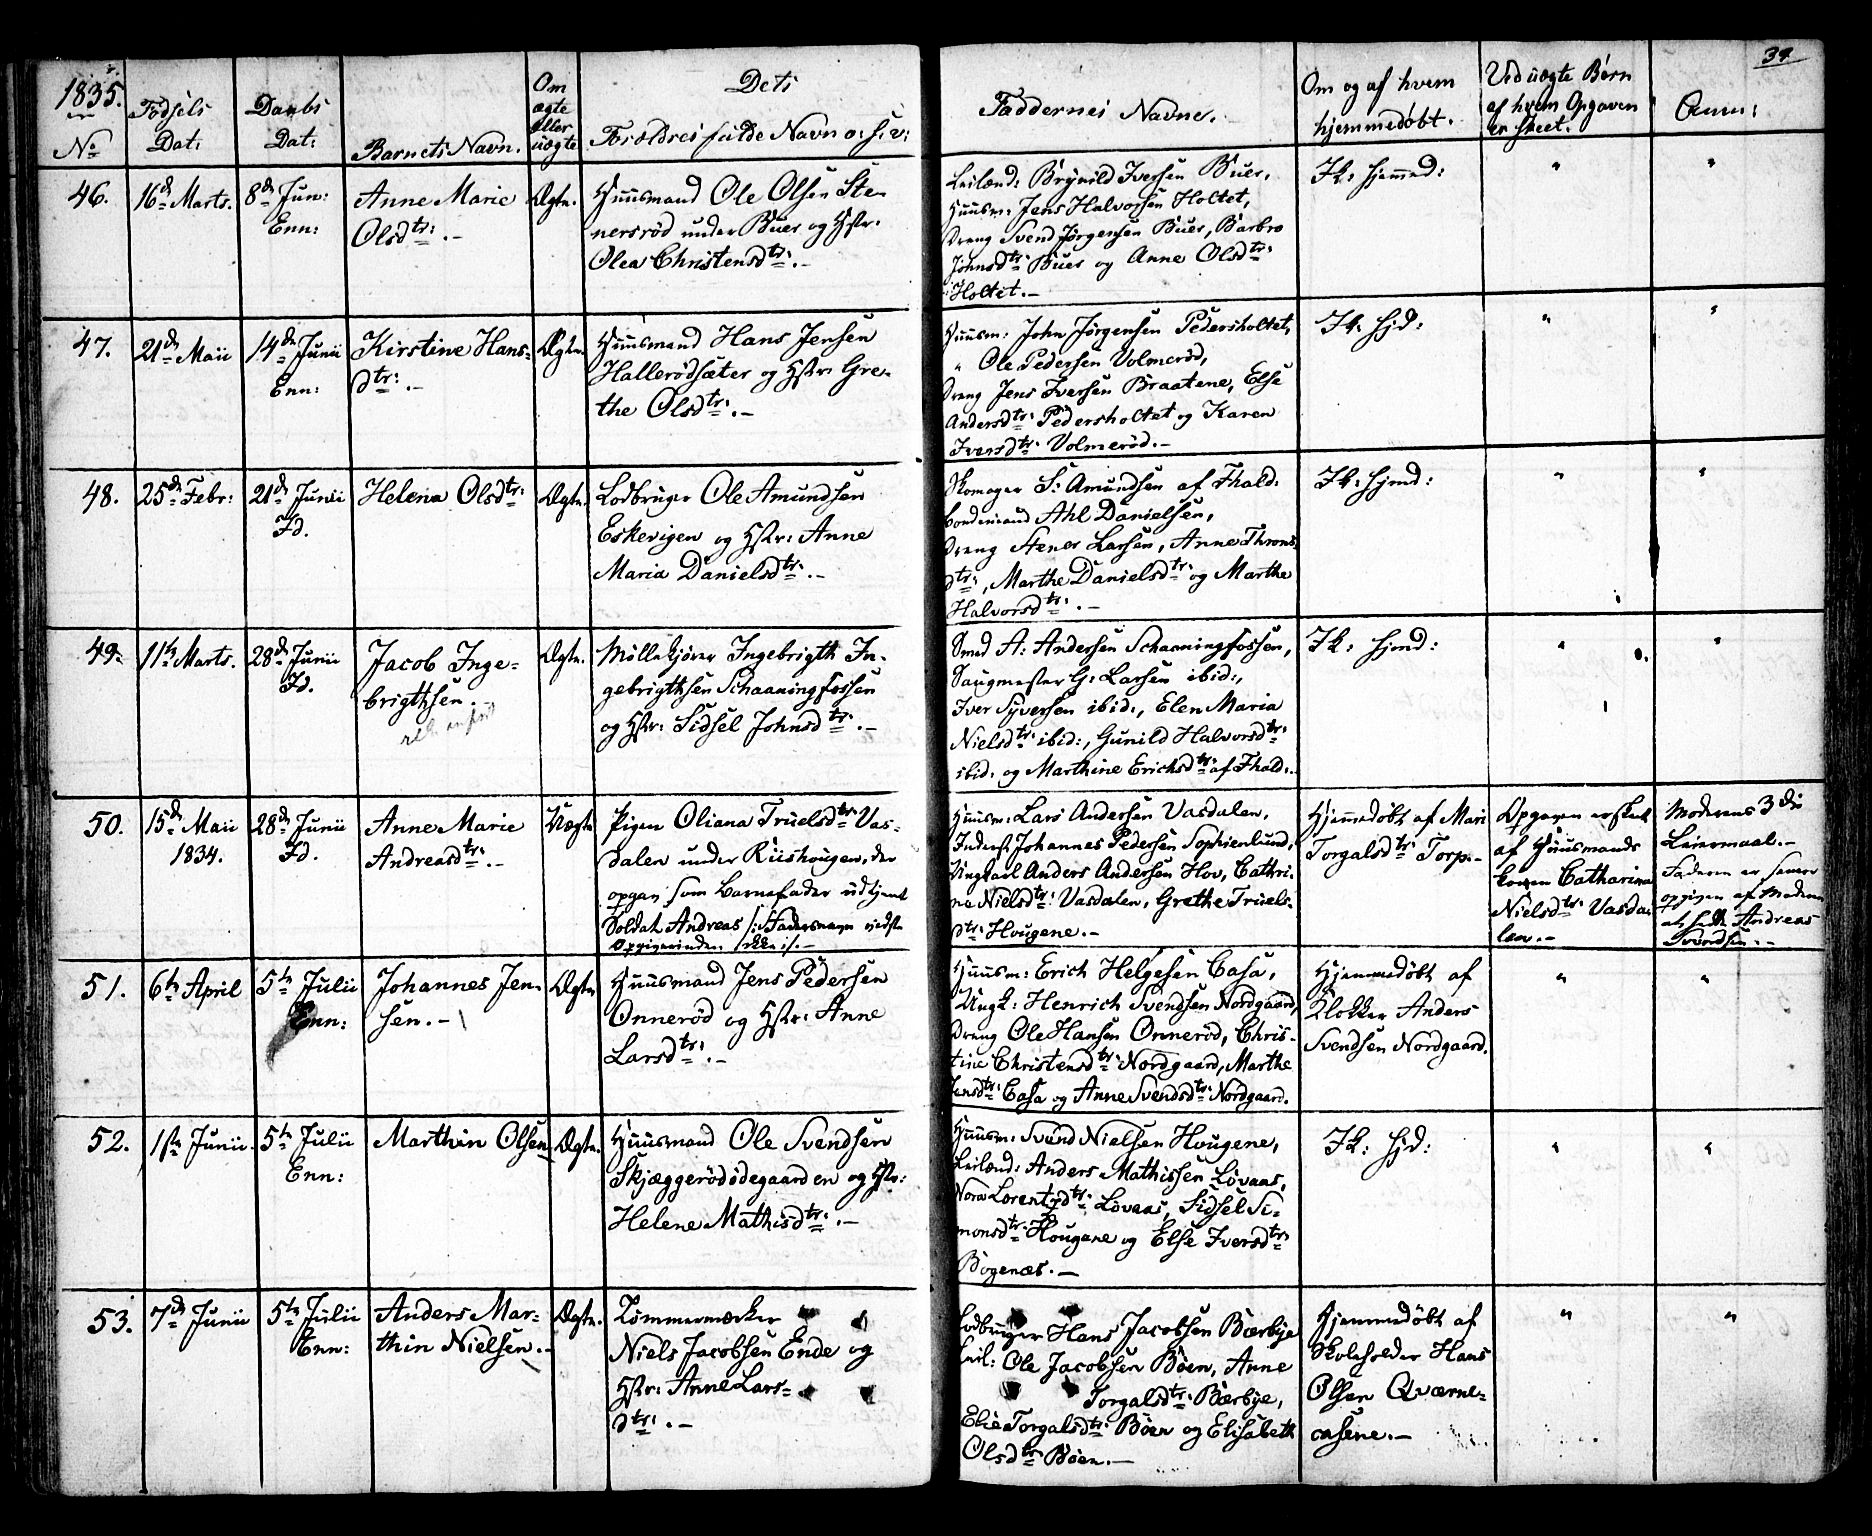 34
1835.
No
Fødsels
Dat:
Daabs
Dat:
Barnets Navn.
Om
ægte
eller
uægte
Dets
Forældres fulde Navn o: s: v:
Faddernes Navne.
Om og af hvem
hjemmedøbt.
Ved uægte Børn
af hvem Opgaven
er skeet.
Anm:
46.
16d Marts.
8d Jun:
Enn:
Anne Marie
Olsdtr: .-
Ægte.
Huusmand Ole Olsen Ste-
nersrød under Buer og Hstr:
Olea Christensdtr: .-
Leilænd: Brynild Iversen Buer,
Huusm: Jens Halvorsen Holtet,
Dreng Svend Jørgensen Buer, Barbro
Johnsdtr: Buer og Anne Olsdtr:
Holtet.-
Ik: hjemmd:
"
"
47.
21d Maii
14d Junii
Enn:
Kirstine Hans-
dtr: .-
Ægte.
Huusmand Hans Jensen
Hallerødsæter og Hstr: Gre-
the Olsdtr: .-
Huusm: John Jørgensen Pedersholtet,
" Ole Pedersen Volmerød,
Dreng Jens Iversen Braatene, Else
Andersdtr: Pedersholtet og Karen
Iversdtr: Volmerød.-
Ik: hjd:
"
"
48.
25d Febr:
21d Junii
Fd.
Helena Olsdtr:
Ægte.
Lodbruger Ole Amundsen
Eskevigen og Hstr: Anne
Maria Danielsdtr: .-
Skomager S: Amundsen af Fhald.
Bondemand Ahl Danielsen,
Dreng Stener Larsen, Anne Throns
dtr:, Marthe Danielsdtr: og Marthe
Halvorsdtr: .-
Ik: hjmd:
"
"
49.
11te Marts.
28d Junii
Fd.
Jacob Inge-
brigthsen.
Ægte.
Møllekjører Ingebrigth In-
gebrigthsen Schaaningfossen
og Hstr: Sidsel Johnsdtr: .-
Smed A: Andersen Schaaningfossen,
Saugmester G: Larsen ibid:,
Iver Syversen ibid:, Elen Maria
Nielsdtr: ibid:, Gunild Halvorsdtr:
ibid: og Marthine Erichsdtr: af Fhald:.
Ik: hjmd:
"
"
50.
15d Maii
1834.
28d Junii
Fd.
Anne Marie
Andreasdtr: .-
Uægte
Pigen Oliana Truelsdtr: Vas-
dalen under Riishougen, der
opgav som Barnefader udtjent
Soldat Andreas /: Fadersnavn vidste
Opgiverinden ikke :/. -
Huusm: Lars Andersen Vasdalen,
Inderst Johannes Pedersen Sophienlund,
Ungkarl Anders Andersen Hov, Cathri-
ne Nielsdtr: Vasdalen, Grethe Truels-
dtr: Hougene.-
Hjemmedøbt af Mari
Torgalsdtr: Torp.-
Opgaven er skeet
af Huusmands
konen Catharina
Nielsdtr: Vasda-
len.-
Moderens 3die
Leiermaal.-
Faderen er senere
opgiven af Moderen
at hede Andreas
Svendsen.-
51.
6te April
5te Julii
Enn:
Johannes Jen-
sen.-
Ægte
Huusmand Jens Pedersen
Onnerød og Hstr: Anne
Larsdtr: .-
Huusm: Erich Helgesen Casa,
Ungk: Henrich Svendsen Nordgaard,
Dreng Ole Hansen Onnerød, Chris-
tine Christensdtr: Nordgaard, Marthe
Jensdtr: Casa og Anne Svendsdtr: Nordgaard.
Hjemmedøbt af
Klokker Anders
Svendsen Nordgaard.
"
"
52.
1ste Junii
5te Julii
Enn:
Marthin Olsen
Ægte.
Huusmand Ole Svendsen
Skjæggerødødegaarden og Hstr:
Helene Mathisdtr: .-
Huusm: Svend Nielsen Hougene,
Leilænd: Anders Mathissen Løvaas,
Nora Lorentzdtr: Løvaas, Sidsel Si-
monsdtr: Hougene og Else Iversdtr:
Bøgenæs.-
Ik: hjd:
"
"
53.
7d Junii
5te Julii
Enn:
Anders Mar-
thin Nielsen.-
Ægte.
Tømmermærker
Niels Jacobsen Ende og
Hstr: Anne Lars-
dtr: .-
Lodbruger Hans Jacobsen Bærbye
Leil: Ole Jacobsen Bøen, Anne
Torgalsdtr: Bærbye,
Elie Torgalsdtr: Bøen og Elisabeth
Olsdtr: Bøen.-
Hjemmedøbt af
Skoleholder Hans
Olsen Qværne-
casene.-
"
"